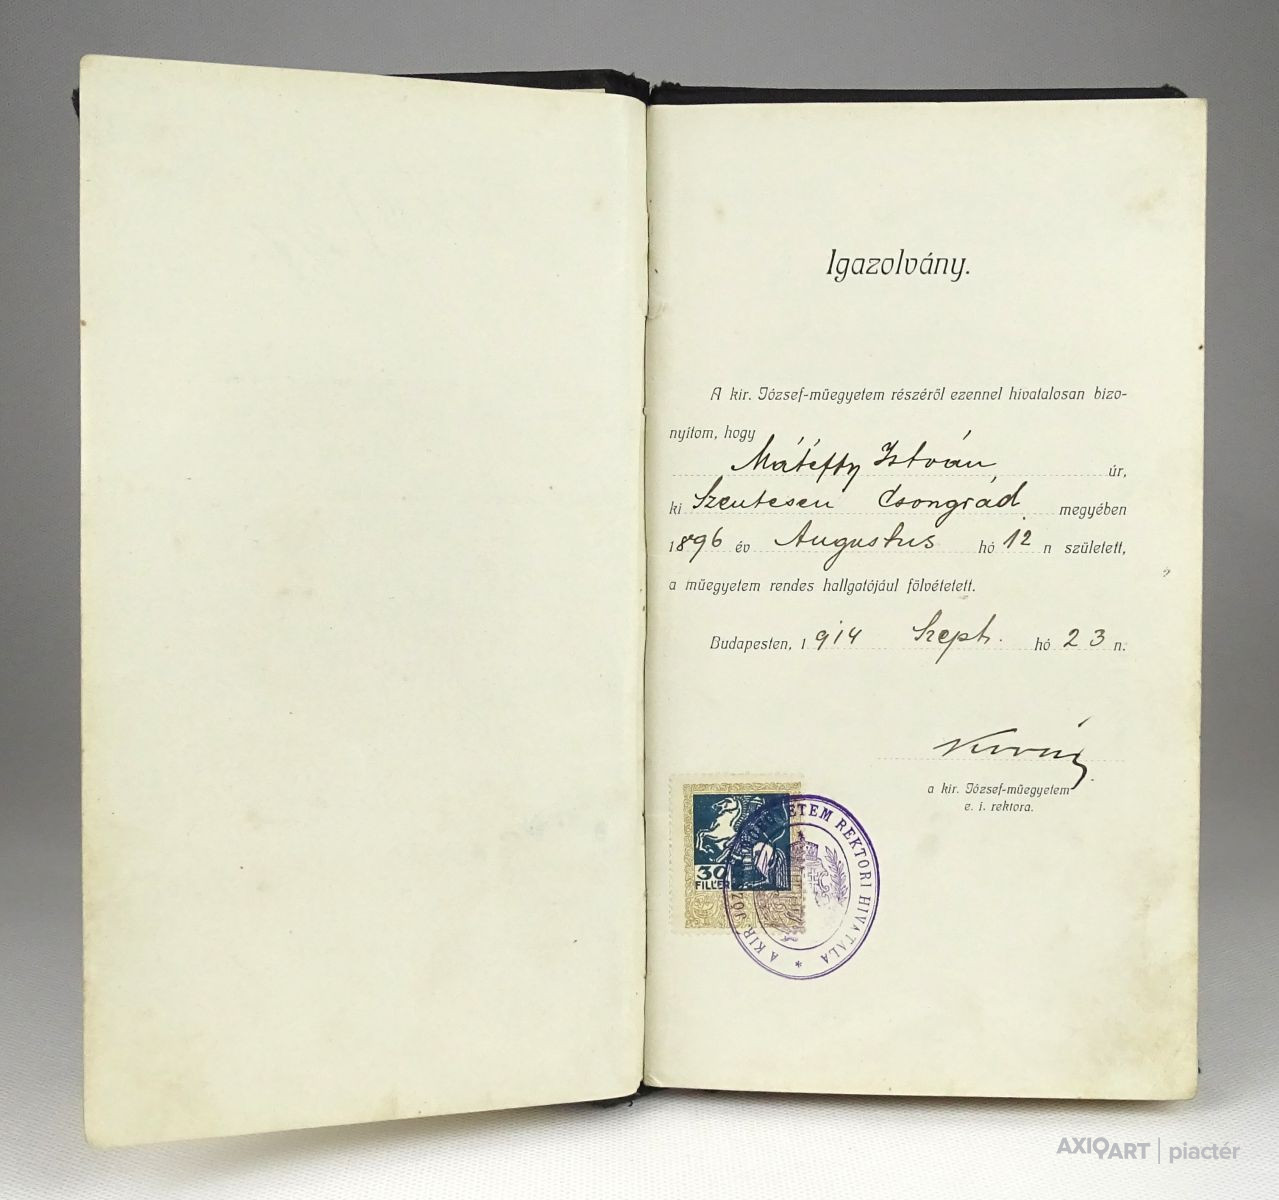 Igazolvány.
A kir. József-műegyetem részéről ezennel hivatalosan bizo-
nyítom, hogy
Mátéffy István úr,
ki Szentesen Csongrád megyében
1896 év Augustus hó 12 n született,
a műegyetem rendes hallgatójául fölvétetett.
Budapesten, 1914 Szept. hó 23 n.
a kir. József-műegyetem
e. i. rektora.
30
FILLÉR
A KIR. JÓZSEF MŰEGYETEM REKTORI HIVATALA *
AXIOART | piactér